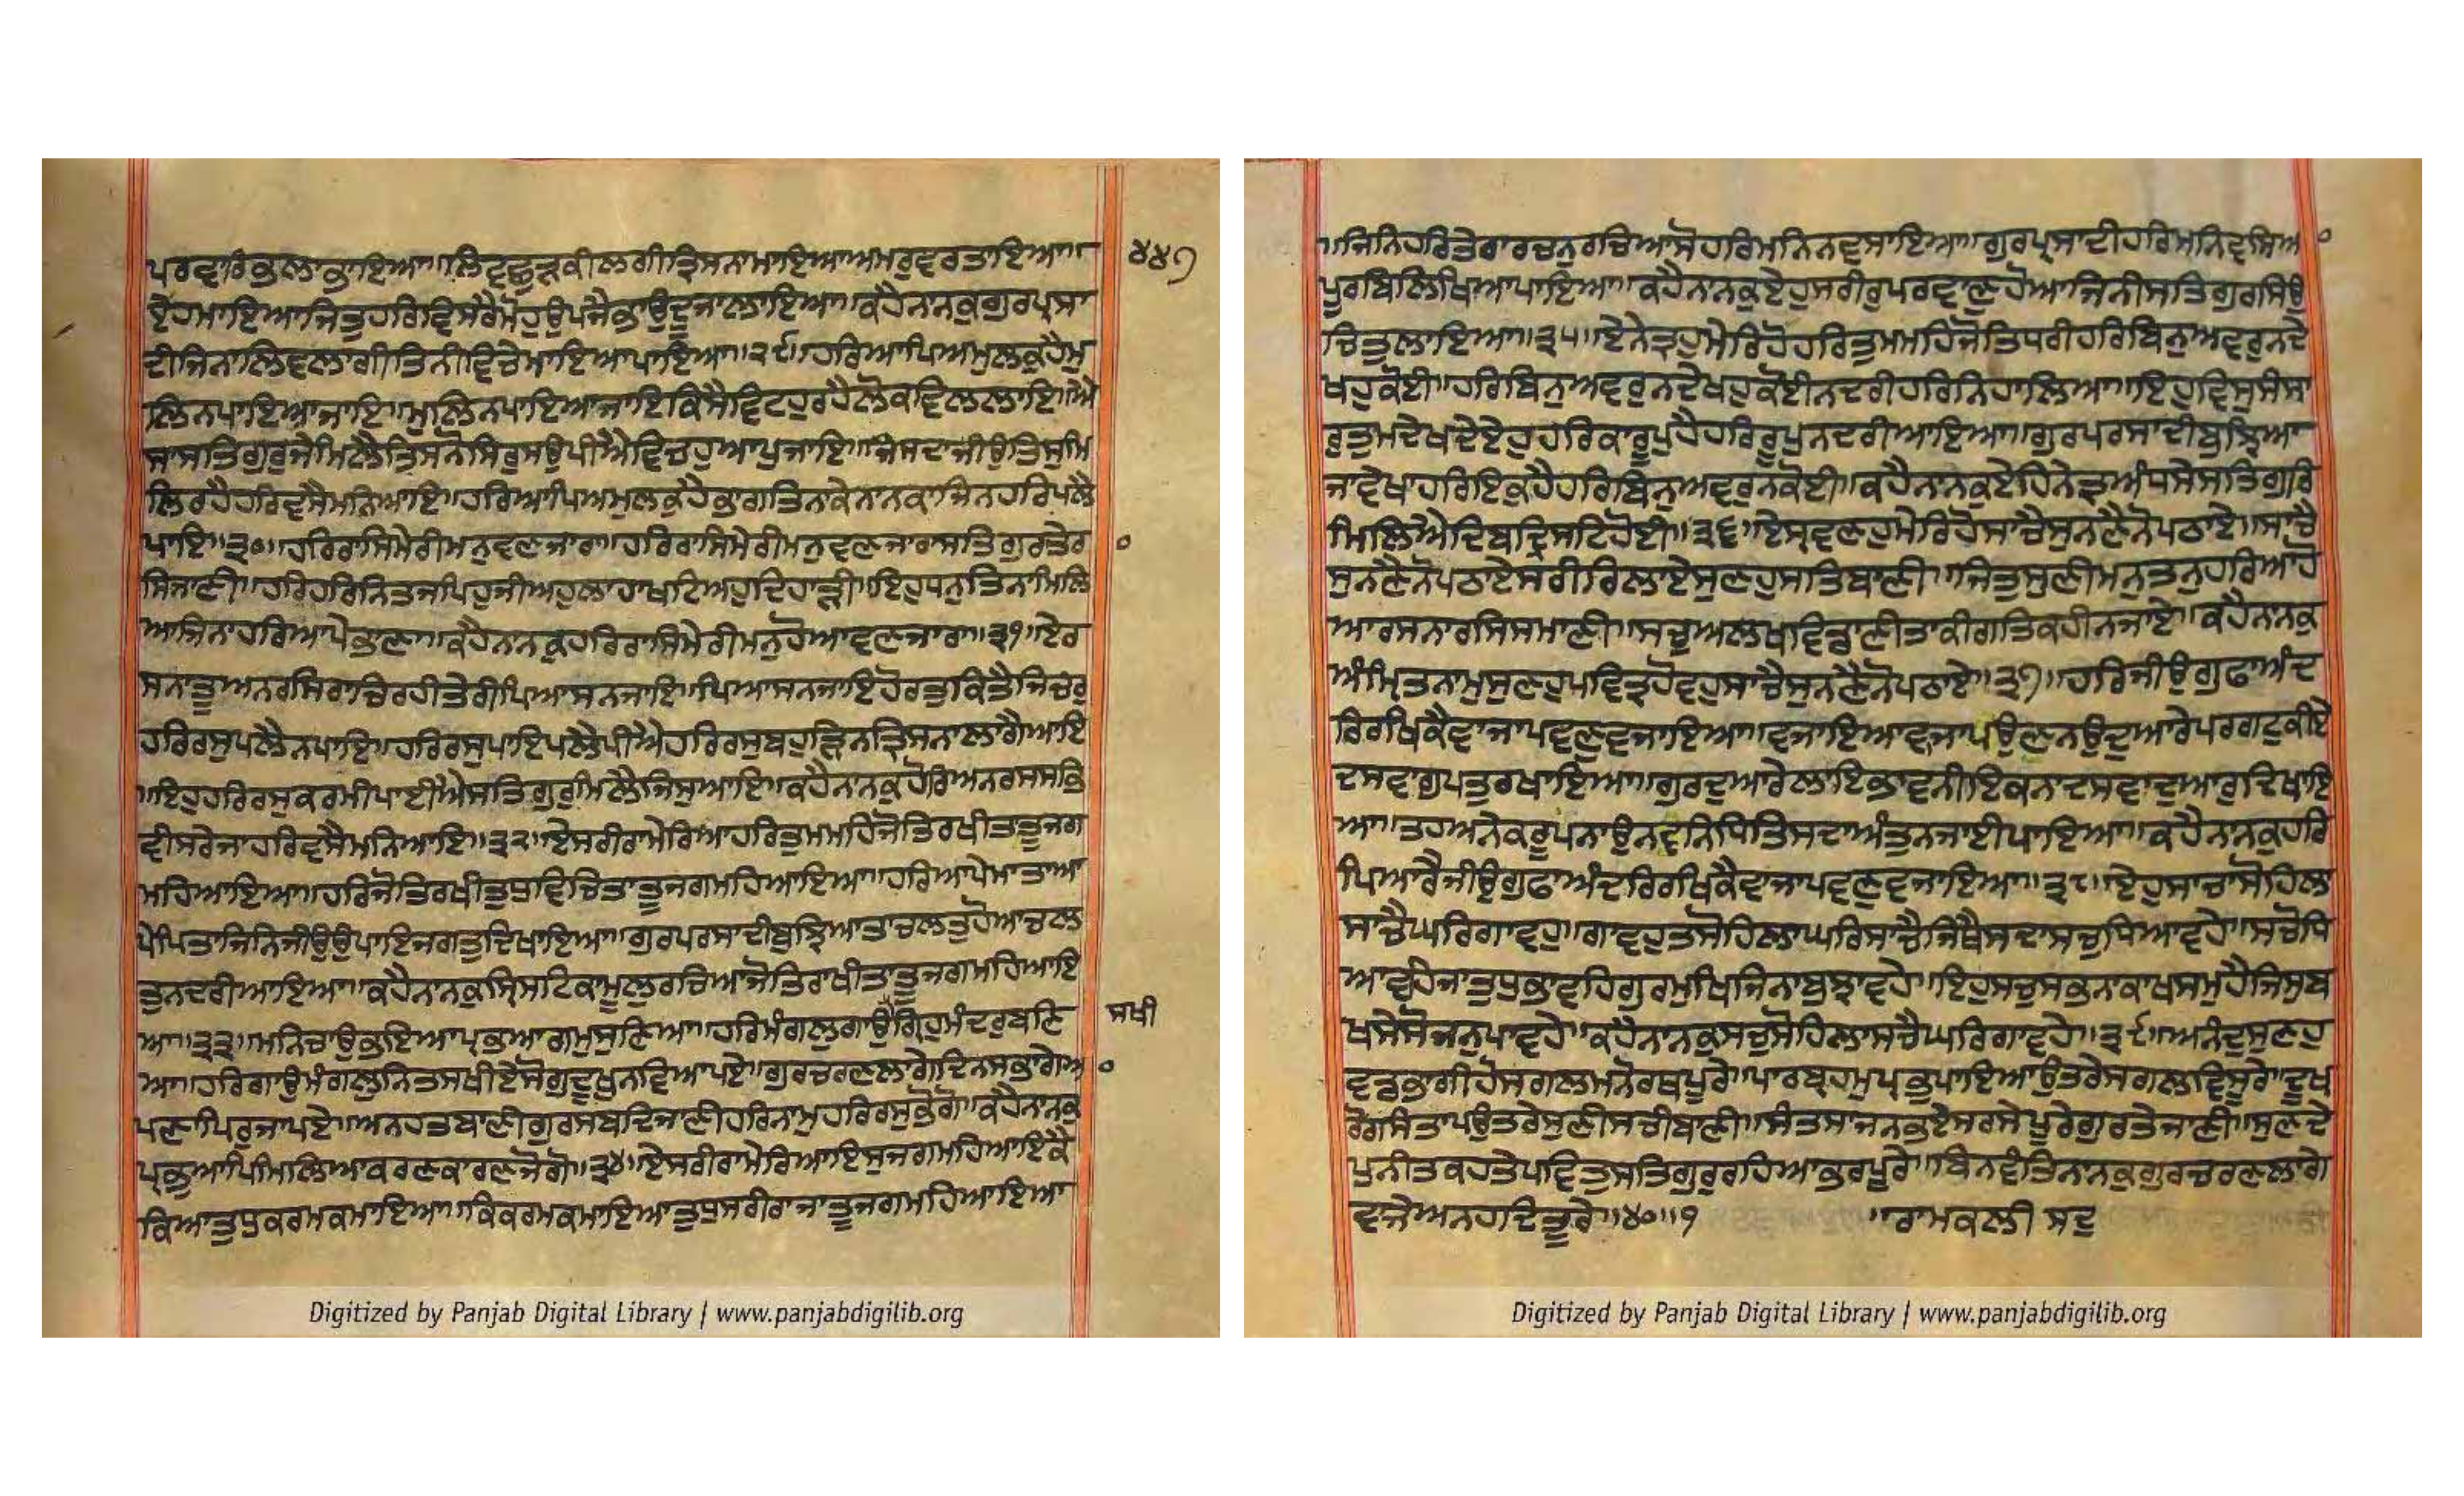 ਪਰਵਾਰਿਭਲਾਭਾਇਆ॥ਲਿਵਛੁੜਕੀਲਗੀਤ੍ਰਿਸਨਾਮਾਇਆਅਮਰੁਵਰਤਾਇਆ॥
ਏਹਮਾਇਆਜਿਤੁਹਰਿਵਿਸਰੈਮੋਹੁਉਪਜੈਭਾਉਦੂਜਾਲਾਇਆ॥ਕਹੈਨਾਨਕੁਗੁਰਪ੍ਰਸਾ
ਦੀਜਿਨਾਲਿਵਲਾਗੀਤਿਨੀਵਿਚੇਮਾਇਆਪਾਇਆ॥੨੯॥ਹਰਿਆਪਿਅਮੁਲਕੁਹੈਮੁ
ਲਿਨਪਾਇਆਜਾਇ॥ਮੁਲਿਨਪਾਇਆਜਾਇਕਿਸੈਵਿਟਹੁਰਹੈਲੋਕਵਿਲਲਾਇ॥ਐ
ਸਾਸਤਿਗੁਰੁਜੇਮਿਲੈਤਿਸਨੋਸਿਰੁਸਉਪੀਐਵਿਚਹੁਆਪੁਜਾਇ॥ਜਿਸਦਾਜੀਉਤਿਸੁਮਿ
ਲਿਰਹੈਹਰਿਵਸੈਮਨਿਆਇ॥ਹਰਿਆਪਿਅਮੁਲਕੁਹੈਭਾਗਤਿਨਾਕੇਨਾਨਕਾਜਿਨਹਰਿਪਲੈ
ਪਾਇ॥੩੦॥ਹਰਿਰਾਸਿਮੇਰੀਮਨੁਵਣਜਾਰਾ॥ਹਰਿਰਾਸਿਮੇਰੀਮਨੁਵਣਜਾਰਾਸਤਿਗੁਰਤੇਰਾ
ਸਿਜਾਣੀ॥ਹਰਿਹਰਿਨਿਤਜਪਿਹੁਜੀਅਹੁਲਾਹਾਖਟਿਅਹੁਦਿਹਾੜੀ॥ਇਹੁਧਨੁਤਿਨਾਮਿਲਿ
ਆਜਿਨਾਹਰਿਆਪੇਭਾਣਾ॥ਕਹੈਨਾਨਕੁਹਰਿਰਾਸਿਮੇਰੀਮਨੁਹੋਆਵਣਜਾਰਾ॥੩੧॥ਏਰ
ਸਨਾਤੂਅਨਰਸਿਰਾਚਿਰਹੀਤੇਰੀਪਿਆਸਨਜਾਇ॥ਪਿਆਸਨਜਾਇਹੋਰਤੁਕਿਤੈਜਿਚਰੁ
ਹਰਿਰਸੁਪਲੈਨਪਾਇ॥ਹਰਿਰਸੁਪਾਇਪਲੈਪੀਐਹਰਿਰਸੁਬਹੁੜਿਨਤ੍ਰਿਸਨਾਲਾਗੈਆਇ
॥ਇਹੁਹਰਿਰਸੁਕਰਮੀਪਾਈਐਸਤਿਗੁਰੁਮਿਲੈਜਿਸੁਆਇ॥ਕਹੈਨਾਨਕੁਹੋਰਿਅਨਰਸਸਭਿ
ਵੀਸਰੇਜਾਹਰਿਵਸੈਮਨਿਆਇ॥੩੨॥ਏਸਰੀਰਾਮੇਰਿਆਹਰਿਤੁਮਮਹਿਜੋਤਿਰਖੀਤਤੂਜਗ
ਮਹਿਆਇਆ॥ਹਰਿਜੋਤਿਰਖੀਤੁਧੁਵਿਚਿਤਾਤੂਜਗਮਹਿਆਇਆ॥ਹਰਿਆਪੇਮਾਤਾਆ
ਪੇਪਿਤਾਜਿਨਿਜੀਉਉਪਾਇਜਗਤੁਦਿਖਾਇਆ॥ਗੁਰਪਰਸਾਦੀਬੁਝਿਆਤਾਚਲਤੁਹੋਆਚਲ
ਤੁਨਦਰੀਆਇਆ॥ਕਹੈਨਾਨਕੁਸ੍ਰਿਸਟਿਕਾਮੂਲੁਰਚਿਆਜੋਤਿਰਾਖੀਤਾਤੂਜਗਮਹਿਆਇ
ਆ॥੩੩॥ਮਨਿਚਾਉਭਇਆਪ੍ਰਭਆਗਮੁਸੁਣਿਆ॥ਹਰਿਮੰਗਲੁਗਾਉਗ੍ਰਿਹੁਮੰਦਰੁਬਣਿ
ਆ॥ਹਰਿਗਾਉਮੰਗਲੁਨਿਤਸਖੀਏਸੋਗੁਦੂਖੁਨਵਿਆਪਏ॥ਗੁਰਚਰਣਲਾਗੇਦਿਨਸਭਾਗੇਆ
ਪਣਾਪਿਰੁਜਾਪਏ॥ਅਨਹਤਬਾਣੀਗੁਰਸਬਦਿਜਾਣੀਹਰਿਨਾਮੁਹਰਿਰਸੁਭੋਗੋ॥ਕਹੈਨਾਨਕੁ
ਪ੍ਰਭੁਆਪਿਮਿਲਿਆਕਰਣਕਾਰਣਜੋਗੋ॥੩੪॥ਏਸਰੀਰਾਮੇਰਿਆਇਸੁਜਗਮਹਿਆਇਕੈ
ਕਿਆਤੁਧੁਕਰਮਕਮਾਇਆ॥ਕਿਕਰਮਕਮਾਇਆਤੁਧੁਸਰੀਰਾਜਾਤੂਜਗਮਹਿਆਇਆ
੪੪੭
ਸਖੀ
Digitized by Panjab Digital Library | www.panjabdigilib.org
॥ਜਿਨਿਹਰਿਤੇਰਾਰਚਨੁਰਚਿਆਸੋਹਰਿਮਨਿਨਵਸਾਇਆ॥ਗੁਰਪ੍ਰਸਾਦੀਹਰਿਮਨਿਵਸਿਆ
ਪੂਰਬਿਲਿਖਿਆਪਾਇਆ॥ਕਹੈਨਾਨਕੁਏਹੁਸਰੀਰੁਪਰਵਾਣੁਹੋਆਜਿਨੀਸਤਿਗੁਰਸਿਉ
ਚਿਤੁਲਾਇਆ॥੩੫॥ਏਨੇਤ੍ਰਹੁਮੇਰਿਹੋਹਰਿਤੁਮਮਹਿਜੋਤਿਧਰੀਹਰਿਬਿਨੁਅਵਰੁਨਦੇ
ਖਹੁਕੋਈ॥ਹਰਿਬਿਨੁਅਵਰੁਨਦੇਖਹੁਕੋਈਨਦਰੀਹਰਿਨਿਹਾਲਿਆ॥ਇਹੁਵਿਸੁਸੰਸਾ
ਰੁਤੁਮਦੇਖਦੇਏਹੁਹਰਿਕਾਰੂਪੁਹੈਹਰਿਰੂਪੁਨਦਰੀਆਇਆ॥ਗੁਰਪਰਸਾਦੀਬੁਝਿਆ
ਜਾਵੇਖਾਹਰਿਇਕੁਹੈਹਰਿਬਿਨੁਅਵਰੁਨਕੋਈ॥ਕਹੈਨਾਨਕੁਏਹਿਨੇਤ੍ਰਅੰਧਸੇਸਤਿਗੁਰਿ
ਮਿਲਿਐਦਿਬਦ੍ਰਿਸਟਿਹੋਈ॥੩੬॥ਏਸ੍ਰਵਣਹੁਮੇਰਿਹੋਸਾਚੈਸੁਨਣੈਨੋਪਠਾਏ॥ਸਾਚੈ
ਸੁਨਣੈਨੋਪਠਾਏਸਰੀਰਿਲਾਏਸੁਣਹੁਸਤਿਬਾਣੀ॥ਜਿਤੁਸੁਣੀਮਨੁਤਨੁਹਰਿਆਹੋ
ਆਰਸਨਾਰਸਿਸਮਾਣੀ॥ਸਚੁਅਲਖਵਿਡਾਣੀਤਾਕੀਗਤਿਕਹੀਨਜਾਏ॥ਕਹੈਨਾਨਕੁ
ਅੰਮ੍ਰਿਤਨਾਮੁਸੁਣਹੁਪਵਿਤ੍ਰਹੋਵਹੁਸਾਚੈਸੁਨਣੈਨੋਪਠਾਏ॥੩੭॥ਹਰਿਜੀਉਗੁਫਾਅੰਦ
ਰਿਰਖਿਕੈਵਾਜਾਪਵਣੁਵਜਾਇਆ॥ਵਜਾਇਆਵਾਜਾਪਉਣਨਉਦੁਆਰੇਪਰਗਟੁਕੀਏ
ਦਸਵਾਗੁਪਤੁਰਖਾਇਆ॥ਗੁਰਦੁਆਰੇਲਾਇਭਾਵਨੀਇਕਨਾਦਸਵਾਦੁਆਰੁਦਿਖਾਇ
ਆ॥ਤਹਅਨੇਕਰੂਪਨਾਉਨਵਨਿਧਿਤਿਸਦਾਅੰਤੁਨਜਾਈਪਾਇਆ॥ਕਹੈਨਾਨਕੁਹਰਿ
ਪਿਆਰੈਜੀਉਗੁਫਾਅੰਦਰਿਰਖਿਕੈਵਾਜਾਪਵਣੁਵਜਾਇਆ॥੩੮॥ਏਹੁਸਾਚਾਸੋਹਿਲਾ
ਸਾਚੈਘਰਿਗਾਵਹੁ॥ਗਾਵਹੁਤਸੋਹਿਲਾਘਰਿਸਾਚੈਜਿਥੈਸਦਾਸਚੁਧਿਆਵਹੇ॥ਸਚੋਧਿ
ਆਵਹਿਜਾਤੁਧੁਭਾਵਹਿਗੁਰਮੁਖਿਜਿਨਾਬੁਝਾਵਹੇ॥ਇਹੁਸਚੁਸਭਨਾਕਾਖਸਮੁਹੈਜਿਸੁਬ
ਖਸੇਸੋਜਨੁਪਾਵਹੇ॥ਕਹੈਨਾਨਕੁਸਚੁਸੋਹਿਲਾਸਚੈਘਰਿਗਾਵਹੇ॥੩੯॥ਅਨੰਦੁਸੁਣਹੁ
ਵਡਭਾਗੀਹੋਸਗਲਮਨੋਰਥਪੂਰੇ॥ਪਾਰਬ੍ਰਹਮੁਪ੍ਰਭੁਪਾਇਆਉਤਰੇਸਗਲਵਿਸੂਰੇ॥ਦੂਖ
ਰੋਗਸੰਤਾਪਉਤਰੇਸੁਣੀਸਚੀਬਾਣੀ॥ਸੰਤਸਾਜਨਭਏਸਰਸੇਪੂਰੇਗੁਰਤੇਜਾਣੀ॥ਸੁਣਦੇ
ਪੁਨੀਤਕਹਤੇਪਵਿਤੁਸਤਿਗੁਰੁਰਹਿਆਭਰਪੂਰੇ॥ਬਿਨਵੰਤਿਨਾਨਕੁਗੁਰਚਰਣਲਾਗੇ
ਵਾਜੇਅਨਹਦਿਤੂਰੇ॥੪੦॥੧ ॥ਰਾਮਕਲੀ ਸਦੁ
Digitized by Panjab Digital Library | www.panjabdigilib.org